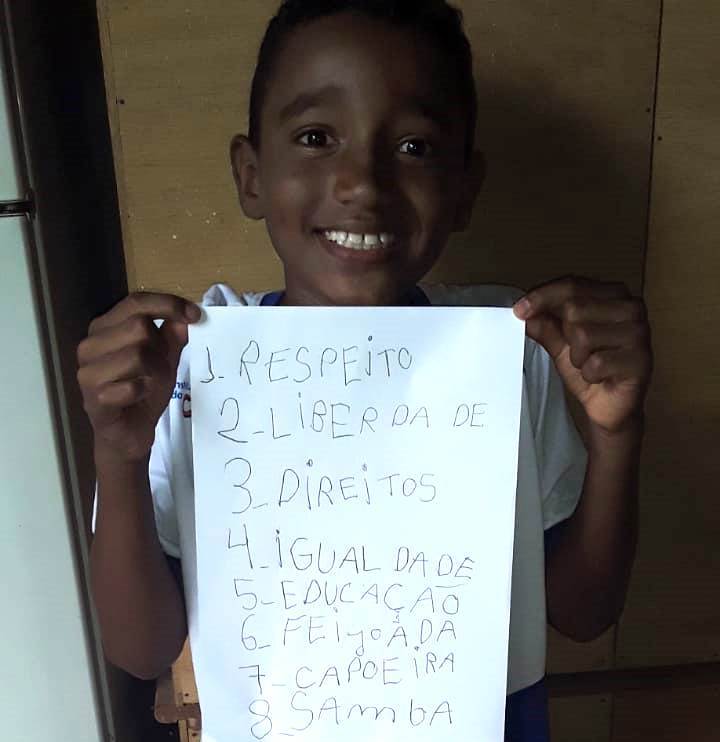 1- RESPEiTO
2-LiBERDADE
3-DiREiTOS
4-iGUALDADE
5-EDUCAÇÃO
6-FEiyoADA
7-CAPOEiRA
8-SAmbA